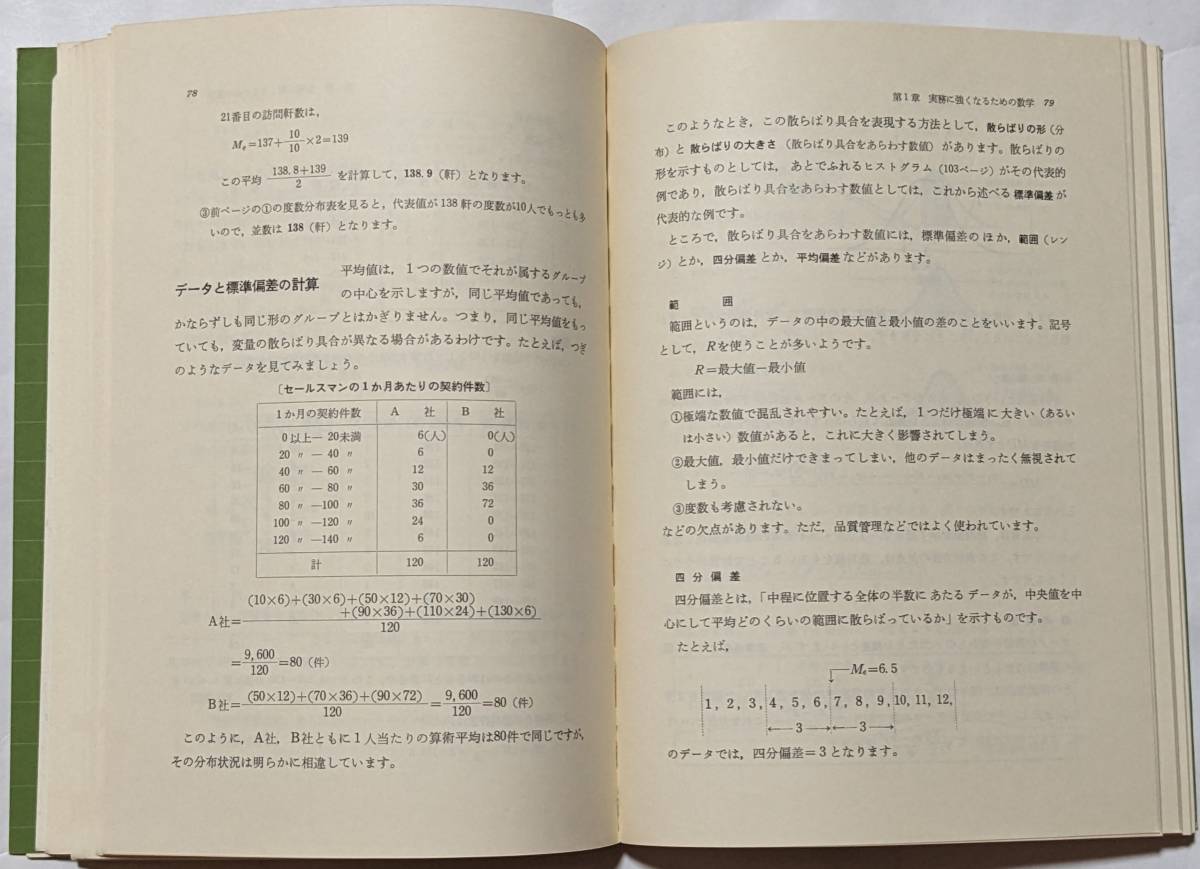 78
21番目の訪問軒数は，
Me=137+10/10×2=139
この平均 138.8+139/2 を計算して，138.9（軒）となります。
③前ページの①の度数分布表を見ると，代表値が138軒の度数が10人でもっとも多
いので，並数は138（軒）となります。
データと標準偏差の計算
平均値は，1つの数値でそれが属するグループ
の中心を示しますが，同じ平均値であっても，
かならずしも同じ形のグループとはかぎりません。つまり，同じ平均値をもっ
ていても，変量の散らばり具合が異なる場合があるわけです。たとえば，つぎ
のようなデータを見てみましょう。
〔セールスマンの1か月あたりの契約件数〕
1か月の契約件数 A 社 B 社
0以上― 20未満 6(人) 0(人)
20 〃 ― 40 〃 6 0
40 〃 ― 60 〃 12 12
60 〃 ― 80 〃 30 36
80 〃 ―100 〃 36 72
100 〃 ―120 〃 24 0
120 〃 ―140 〃 6 0
計 120 120
(10×6)+(30×6)+(50×12)+(70×30)
+(90×36)+(110×24)+(130×6)
A社=
120
=9,600/120=80（件）
B社=(50×12)+(70×36)+(90×72)/120=9,600/120=80（件）
このように，A社，B社ともに1人当たりの算術平均は80件で同じですが，
その分布状況は明らかに相違しています。
第1章 実務に強くなるための数学 79
このようなとき，この散らばり具合を表現する方法として，散らばりの形（分
布）と散らばりの大きさ（散らばり具合をあらわす数値）があります。散らばりの
形を示すものとしては，あとでふれるヒストグラム（103ページ）がその代表的
例であり，散らばり具合をあらわす数値としては，これから述べる標準偏差が
代表的な例です。
ところで，散らばり具合をあらわす数値には，標準偏差のほか，範囲（レン
ジ）とか，四分偏差とか，平均偏差などがあります。
範 囲
範囲というのは，データの中の最大値と最小値の差のことをいいます。記号
として，Rを使うことが多いようです。
R=最大値－最小値
範囲には，
①極端な数値で混乱されやすい。たとえば，1つだけ極端に大きい（あるい
は小さい）数値があると，これに大きく影響されてしまう。
②最大値，最小値だけできまってしまい，他のデータはまったく無視されて
しまう。
③度数も考慮されない。
などの欠点があります。ただ，品質管理などではよく使われています。
四分偏差
四分偏差とは，「中程に位置する全体の半数にあたるデータが，中央値を中
心にして平均どのくらいの範囲に散らばっているか」を示すものです。
たとえば，
Me=6.5
1, 2, 3, 4, 5, 6, 7, 8, 9, 10, 11, 12,
←3→←3→
のデータでは，四分偏差=3となります。